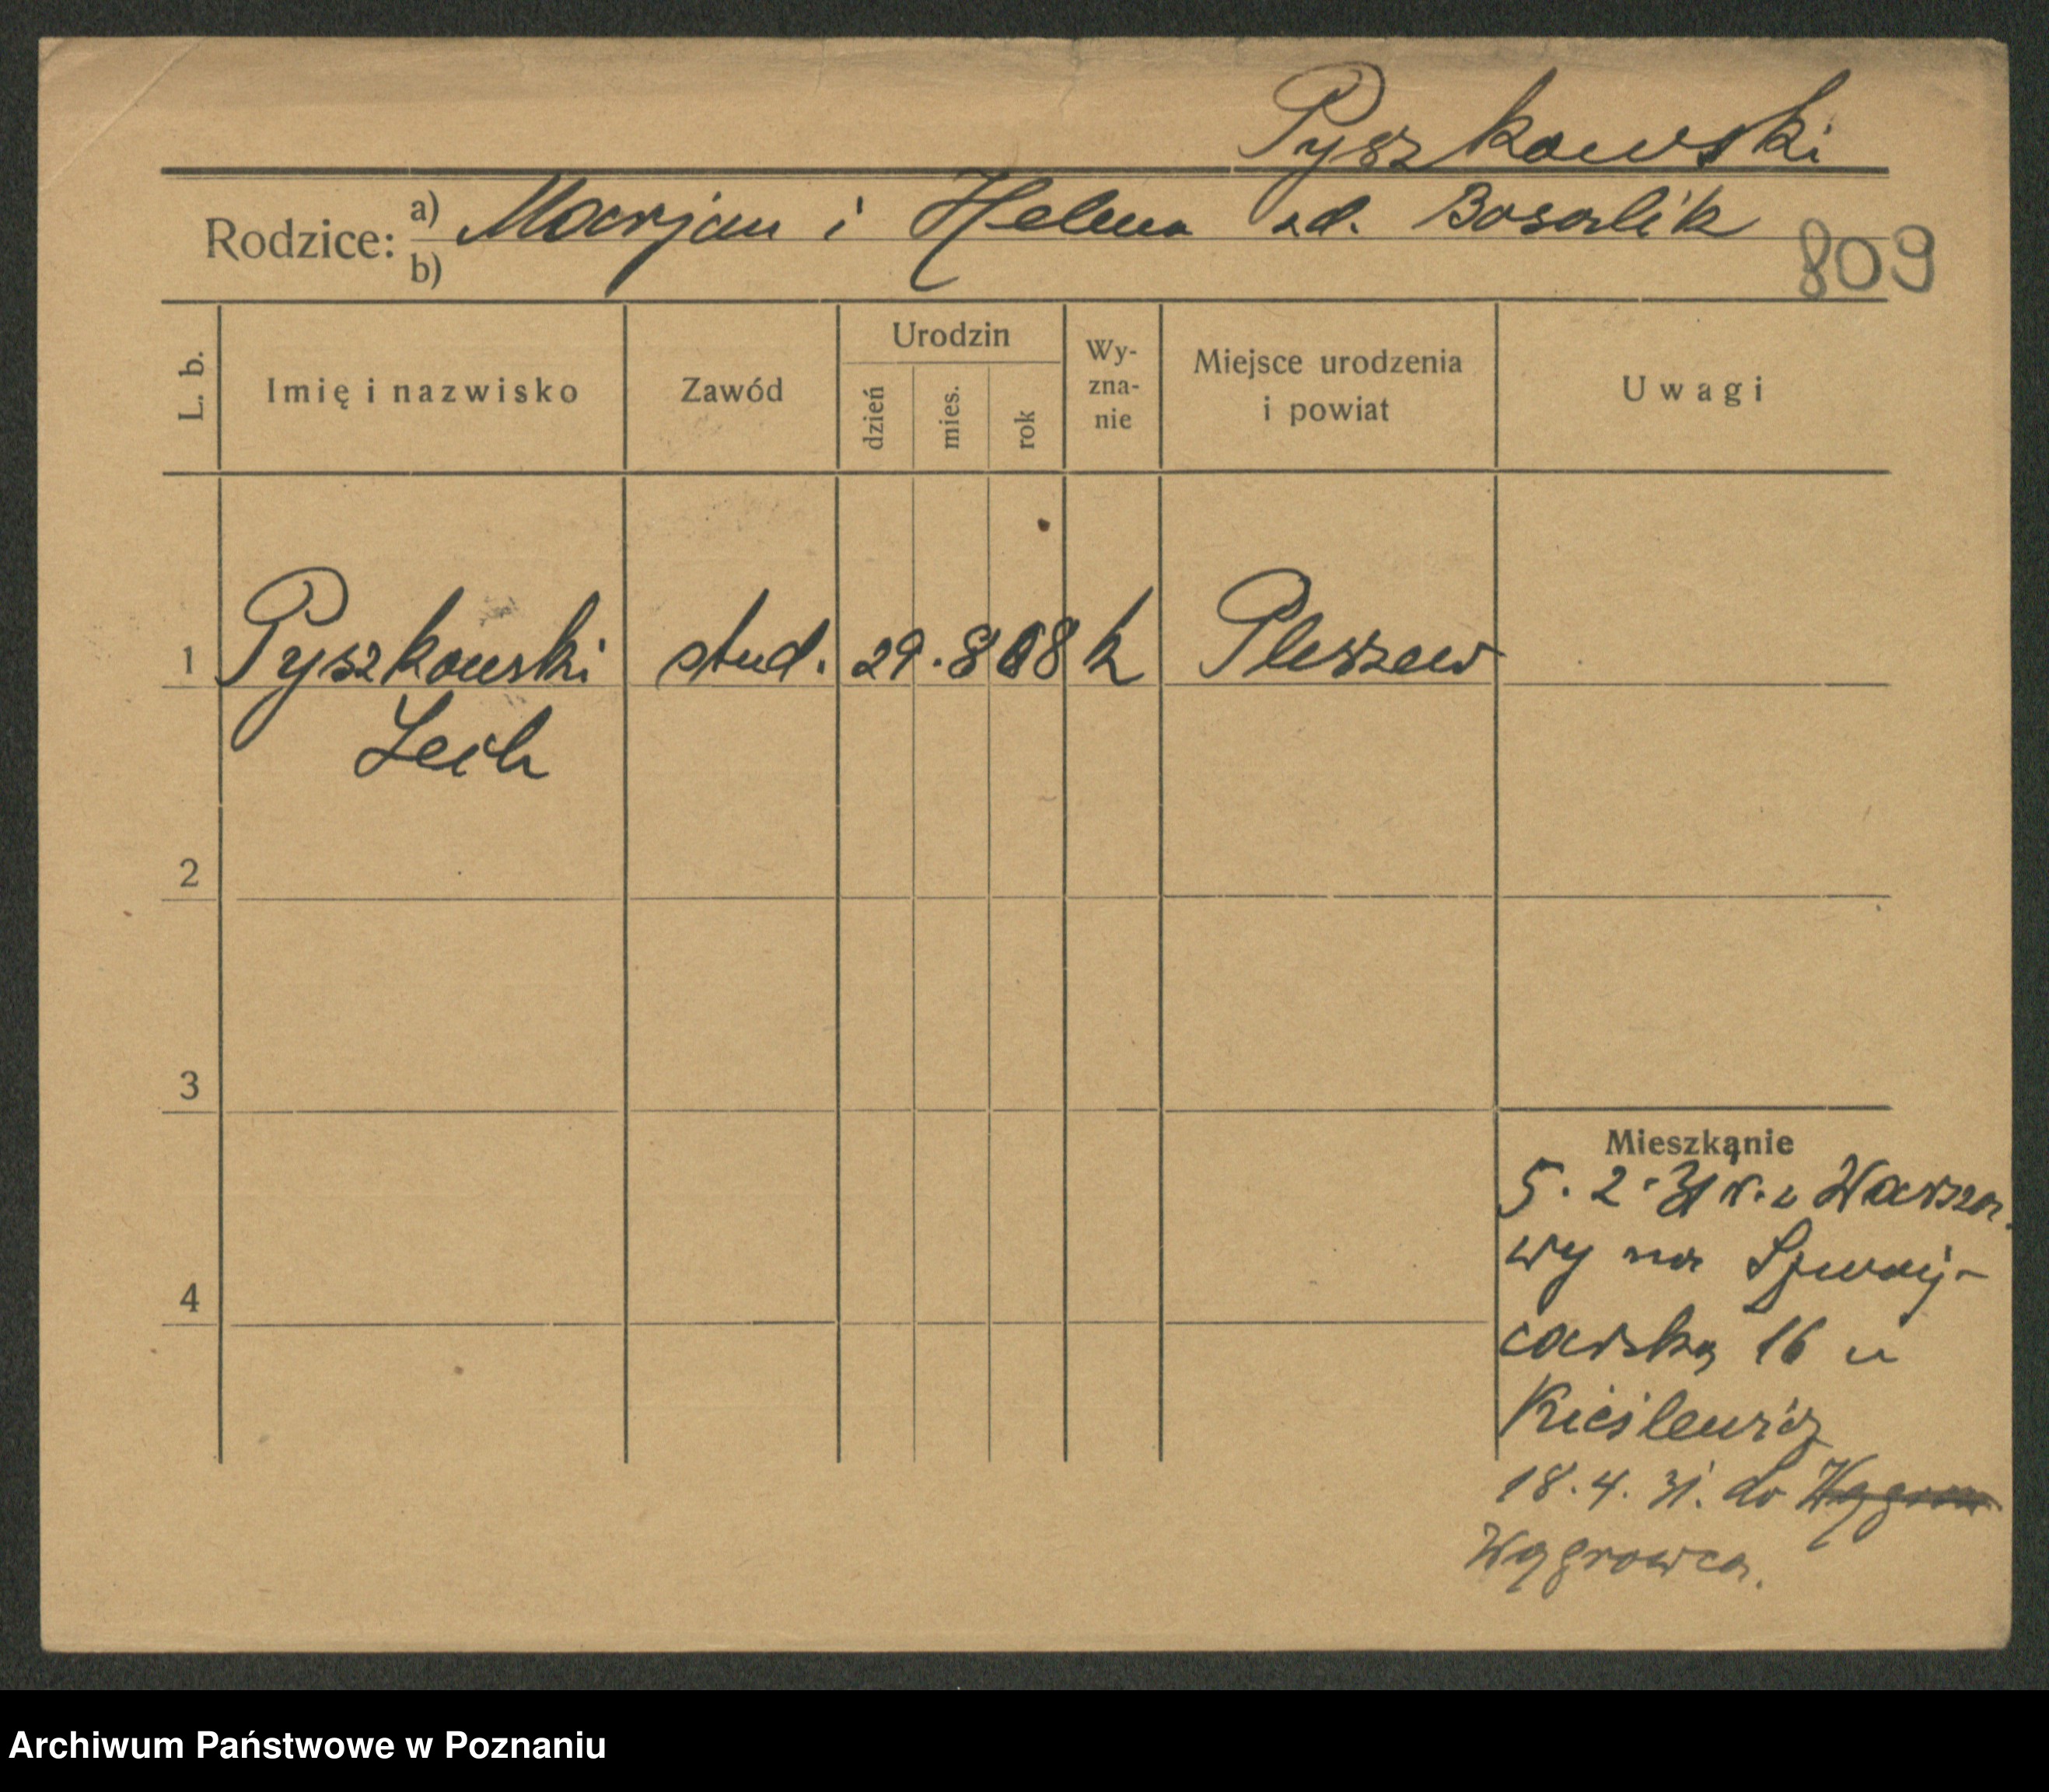 Pyszkowski
Rodzice: a) Marjan i Helena zd. Bosalik
b)
809
L. b.
Imię i nazwisko
Zawód
Urodzin
dzień
mies.
rok
Wy-
zna-
nie
Miejsce urodzenia
i powiat
Uwagi
1 Pyszkowski stud. 29. 8 08 k Pleszew
Lech
2
3
4
Mieszkanie
5. 2. 31 r. z Warsza-
wy na Szwaj-
carską 16 u
Kieślewicz
18. 4. 31. do Wągrow
Wągrowca.
Archiwum Państwowe w Poznaniu